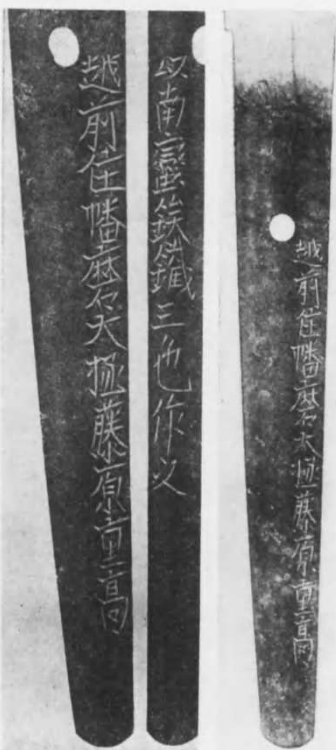 越前住幡磨大掾藤原重高
以南蠻鉄三作之
越前住幡磨大掾藤原重高